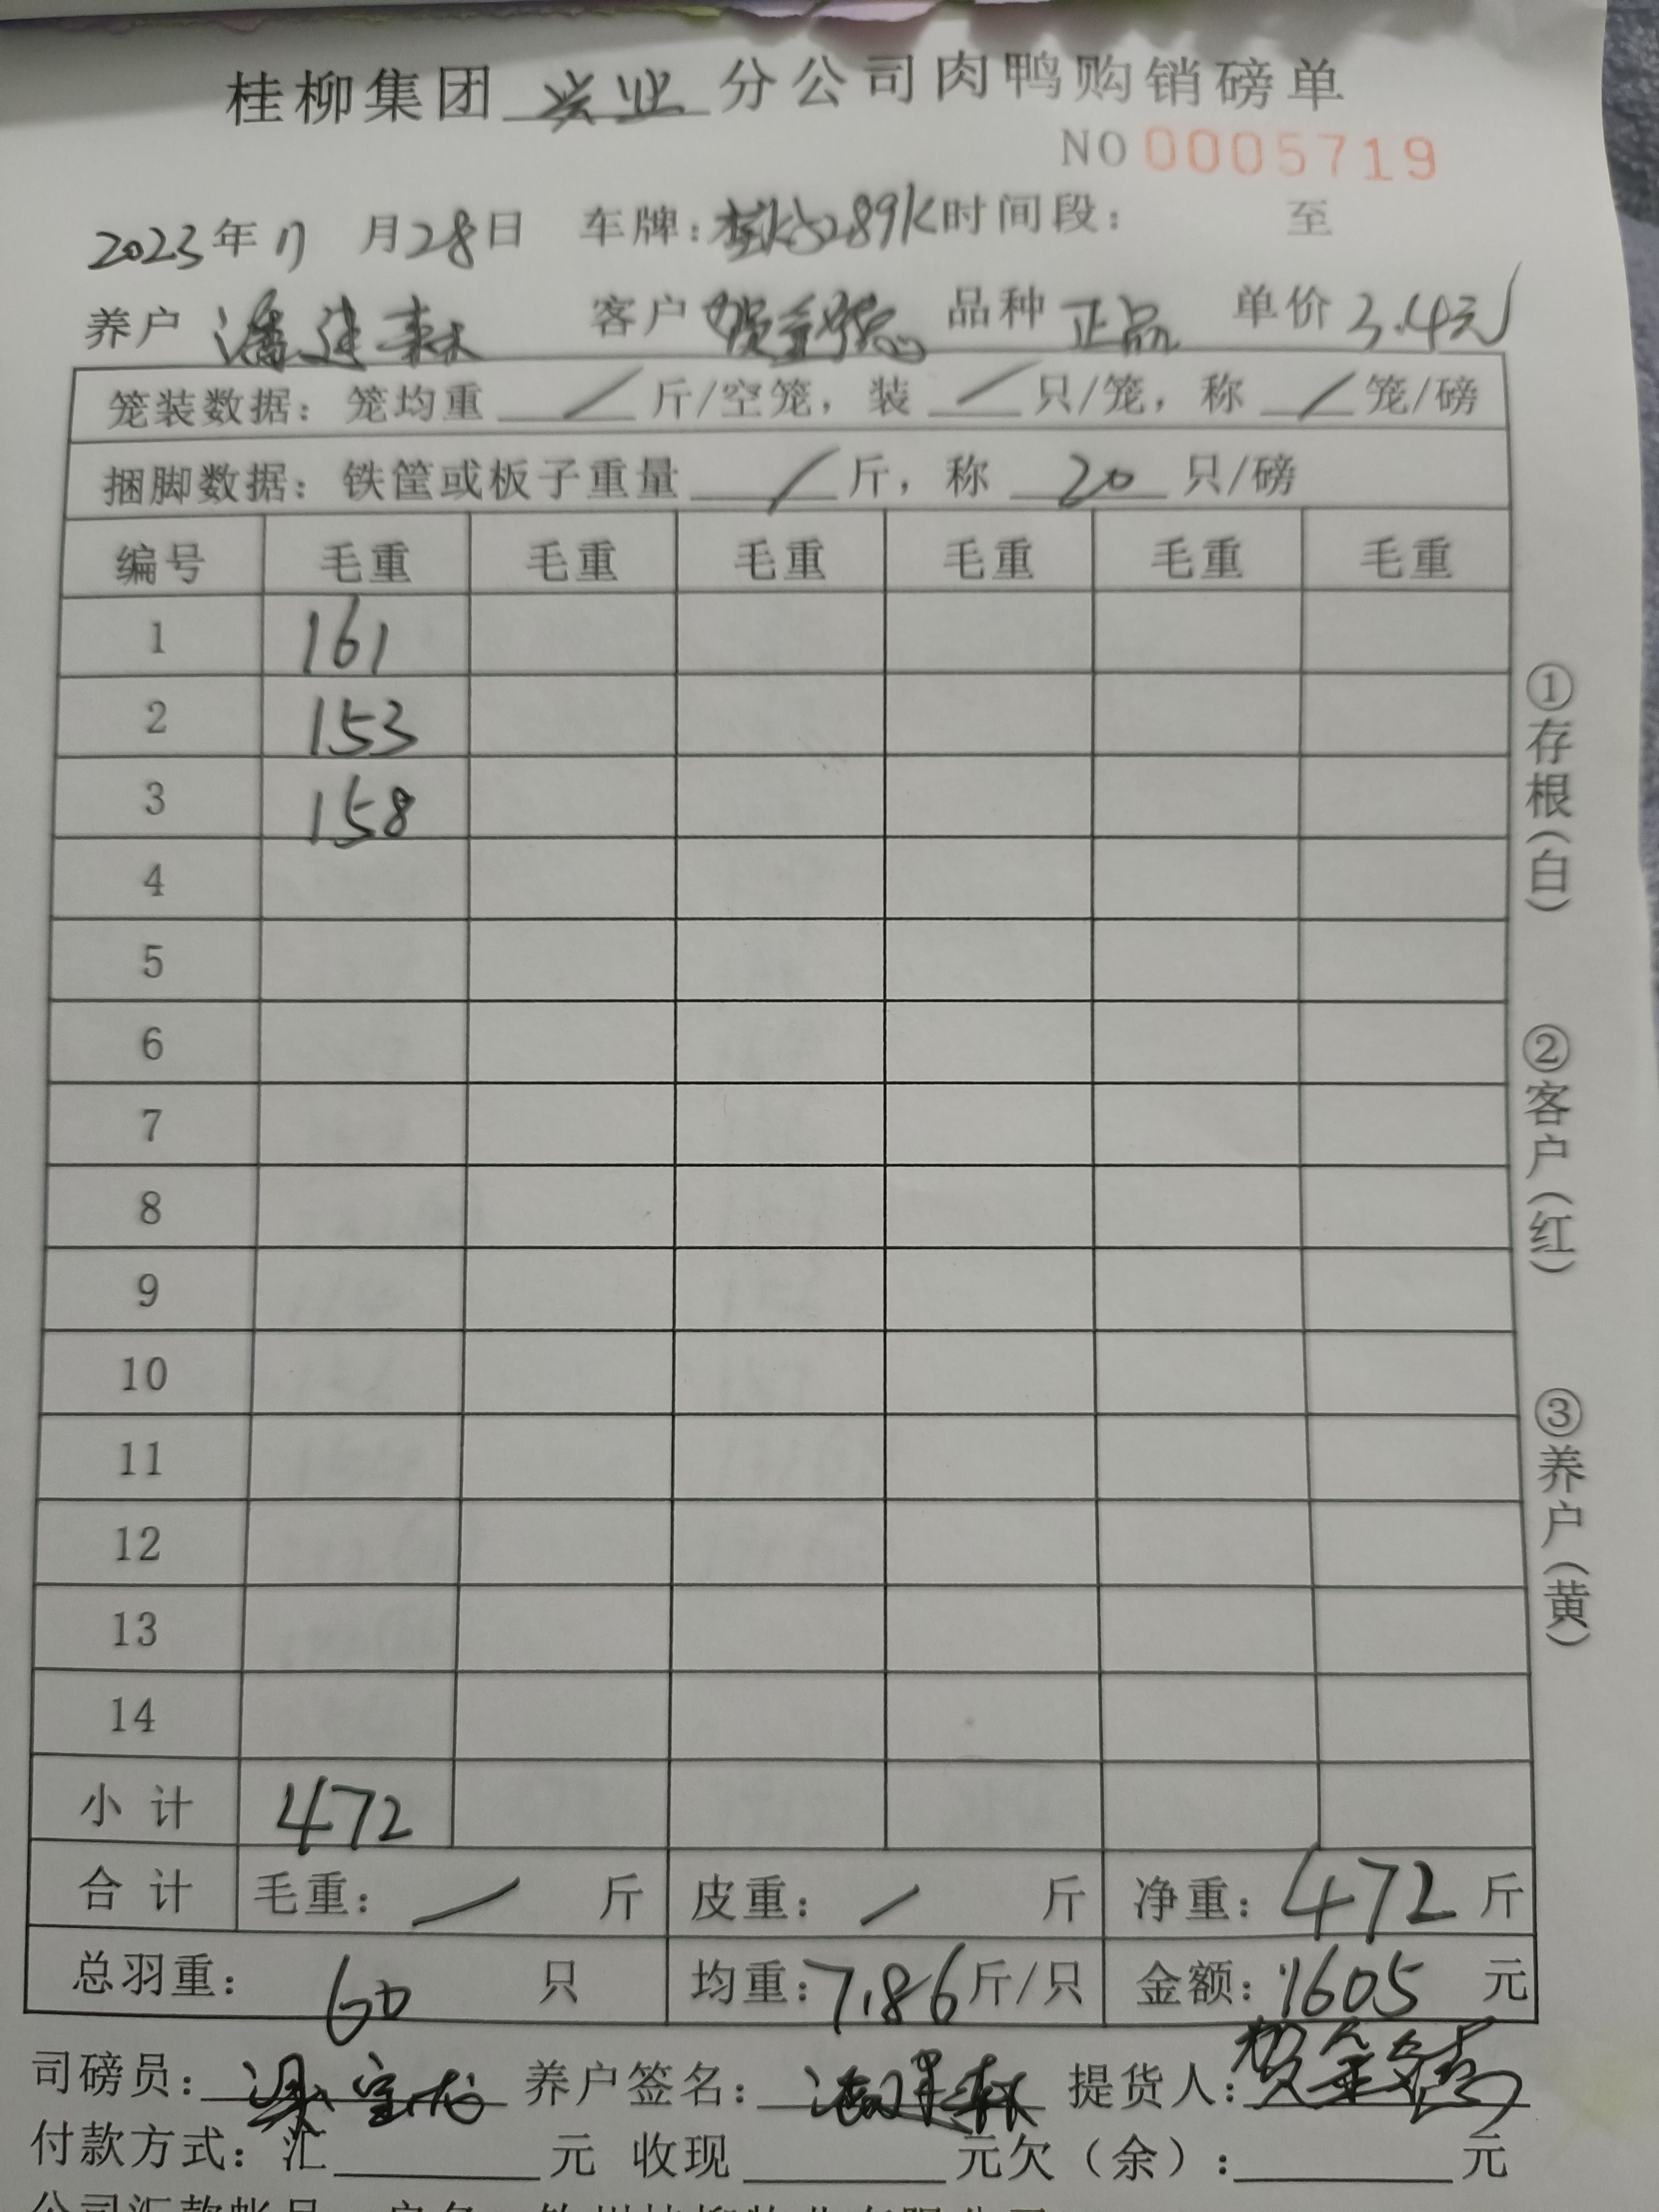 桂柳集团 兴业 分公司肉鸭购销磅单
NO 0005719
2023年11月28日 车牌: 289K 时间段: 至
养户 潘建森 客户 贺金德 品种 正品 单价 3.4元
笼装数据: 笼均重 / 斤/空笼, 装 / 只/笼, 称 / 笼/磅
捆脚数据: 铁筐或板子重量 / 斤, 称 20 只/磅
编号 毛重 毛重 毛重 毛重 毛重 毛重
1 161
2 153
3 158
4
5
6
7
8
9
10
11
12
13
14
小计 472
合计 毛重: / 斤 皮重: / 斤 净重: 472 斤
总羽重: 60 只 均重: 7.86 斤/只 金额: 1605 元
司磅员: 养户签名: 潘建森 提货人: 贺金德
付款方式: 汇 元 收现 元欠(余): 元
①存根(白)
②客户(红)
③养户(黄)